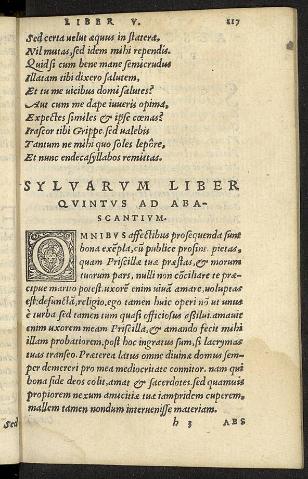 LIBER V. 117
Sed certa uelut æquus in statera,
Nil mutas, sed idem mihi rependis.
Quid si cum bene mane semicrudus
Illatam tibi dixero salutem,
Et tu me uicibus domi salutes?
Aut cum me dape iuueris opima,
Expectes similes & ipse cœnas?
Irascor tibi Grippe. sed ualebis
Tantum ne mihi quo soles lepôre,
Et nunc endecasyllabos remittas.
SYLVARVM LIBER
QVINTVS AD ABA-
SCANTIVM.
OMNIBVS affectibus prosequenda sunt
bona exẽpla, cũ publice prosint. pietas,
quam Priscillæ tuæ præstas, & morum
tuorum pars, nulli non cõciliare te præ-
cipue marito potest. uxorẽ enim uiuã amare, uoluptas
est: defunctã, religio. ego tamen huic operi nõ ut unus
è turba sed tamen tum quasi officiosus assilui. amauit
enim uxorem meam Priscilla, & amando fecit mihi
illam probatiorem. post hoc ingratus sum, si lacrymas
tuas transeo. Præterea latus omne diuinæ domus sem-
per demereri pro mea mediocritate connitor. nam qui
bona fide deos colit, amat & sacerdotes. sed quamuis
propiorem nexum amicitiæ tuæ iampridem cuperem,
mallem tamen nondum interuenisse materiam.
h 3 ABS
Sed